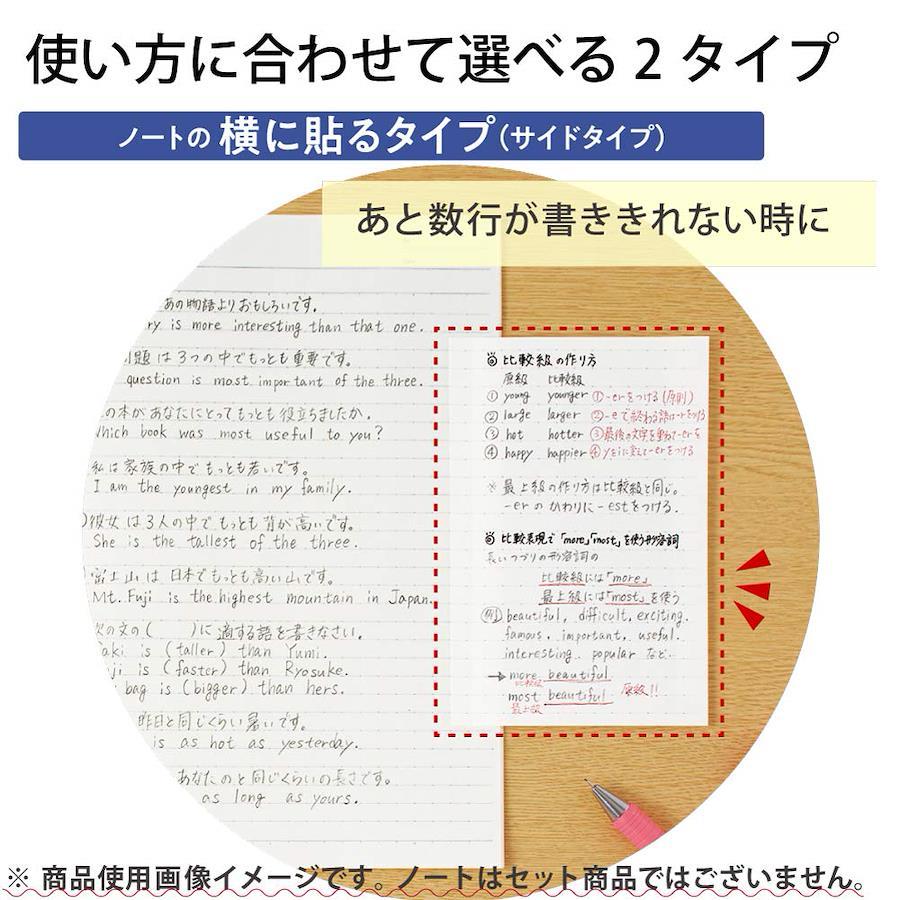 使い方に合わせて選べる2タイプ
ノートの横に貼るタイプ(サイドタイプ)
あと数行が書ききれない時に
あの物語よりおもしろいです。
ry is more interesting than that one.
題は3つの中でもっとも重要です。
question is most important of the three.
の本があなたにとってもっとも役立ちましたか。
Which book was most useful to you?
私は家族の中でもっとも若いです。
I am the youngest in my family.
彼女は3人の中でもっとも背が高いです。
She is the tallest of the three.
富士山は日本でもっとも高い山です。
Mt. Fuji is the highest mountain in Japan.
次の文の( )に適する語を書きなさい。
aki is (taller) than Yumi.
ji is (faster) than Ryosuke.
bag is (bigger) than hers.
昨日と同じくらい暑いです。
is as hot as yesterday.
あなたのと同じくらいの長さです。
as long as yours.
比較級の作り方
原級 比較級
① young younger ①-erをつける(原則)
② large larger ②-eで終わる語は-rをつける
③ hot hotter ③最後の文字を重ねて-erを
④ happy happier ④yをiに変えて-erをつける
※最上級の作り方は比較級と同じ。
-erのかわりに-estをつける.
比較表現で「more」「most」を使う形容詞
長いつづりの形容詞の
比較級には「more」
最上級には「most」を使う
(例) beautiful, difficult, exciting.
famous, important, useful.
interesting. popular など…
→ more beautiful
比較級
most beautiful 原級!!
最上級
※ 商品使用画像イメージです。ノートはセット商品ではございません。